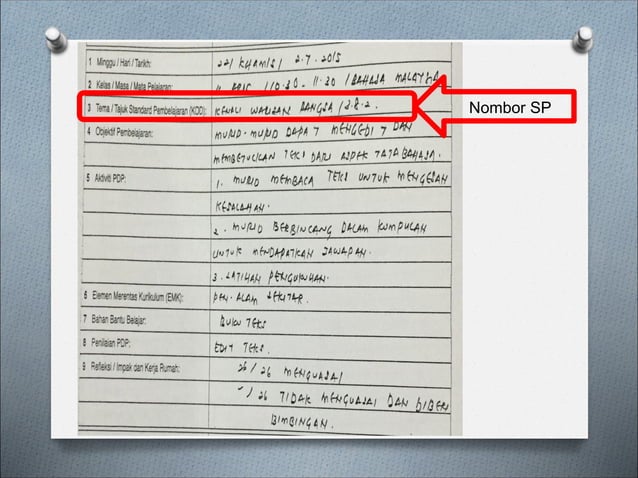 1 Minggu / Hari / Tarikh: 22 / KHAMIS / 2.7.2015
2 Kelas / Masa / Mata Pelajaran: 4 ARIS / 10.30 - 11.30 / BAHASA MALAYSIA
3 Tema / Tajuk Standard Pembelajaran (KOD): KENALI WARISAN BANGSA / 3.8.2.
Nombor SP
4 Objektif Pembelajaran: MURID-MURID DAPAT MENGEDIT DAN
MEMBETULKAN TEKS DARI ASPEK TATABAHASA.
5 Aktiviti PDP: 1. MURID MEMBACA TEKS UNTUK MENGESAN
KESALAHAN.
2. MURID BERBINCANG DALAM KUMPULAN
UNTUK MENDAPATKAN JAWAPAN.
3. LATIHAN PENGUKUHAN.
6 Elemen Merentas Kurikulum (EMK): PEN. ALAM SEKITAR.
7 Bahan Bantu Belajar: BUKU TEKS
8 Penilaian PDP: EDIT TEKS.
9 Refleksi / Impak dan Kerja Rumah: 26 / 26 MENGUASAI
/ 26 TIDAK MENGUASAI DAN DIBERI
BIMBINGAN.